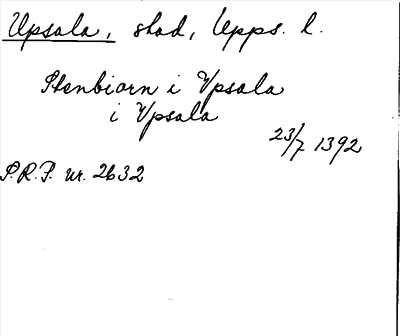 Upsala, stad, Upps. l.
Stenbiorn i Vpsala
i Vpsala
23/7 1392
P.R.P. nr. 2632